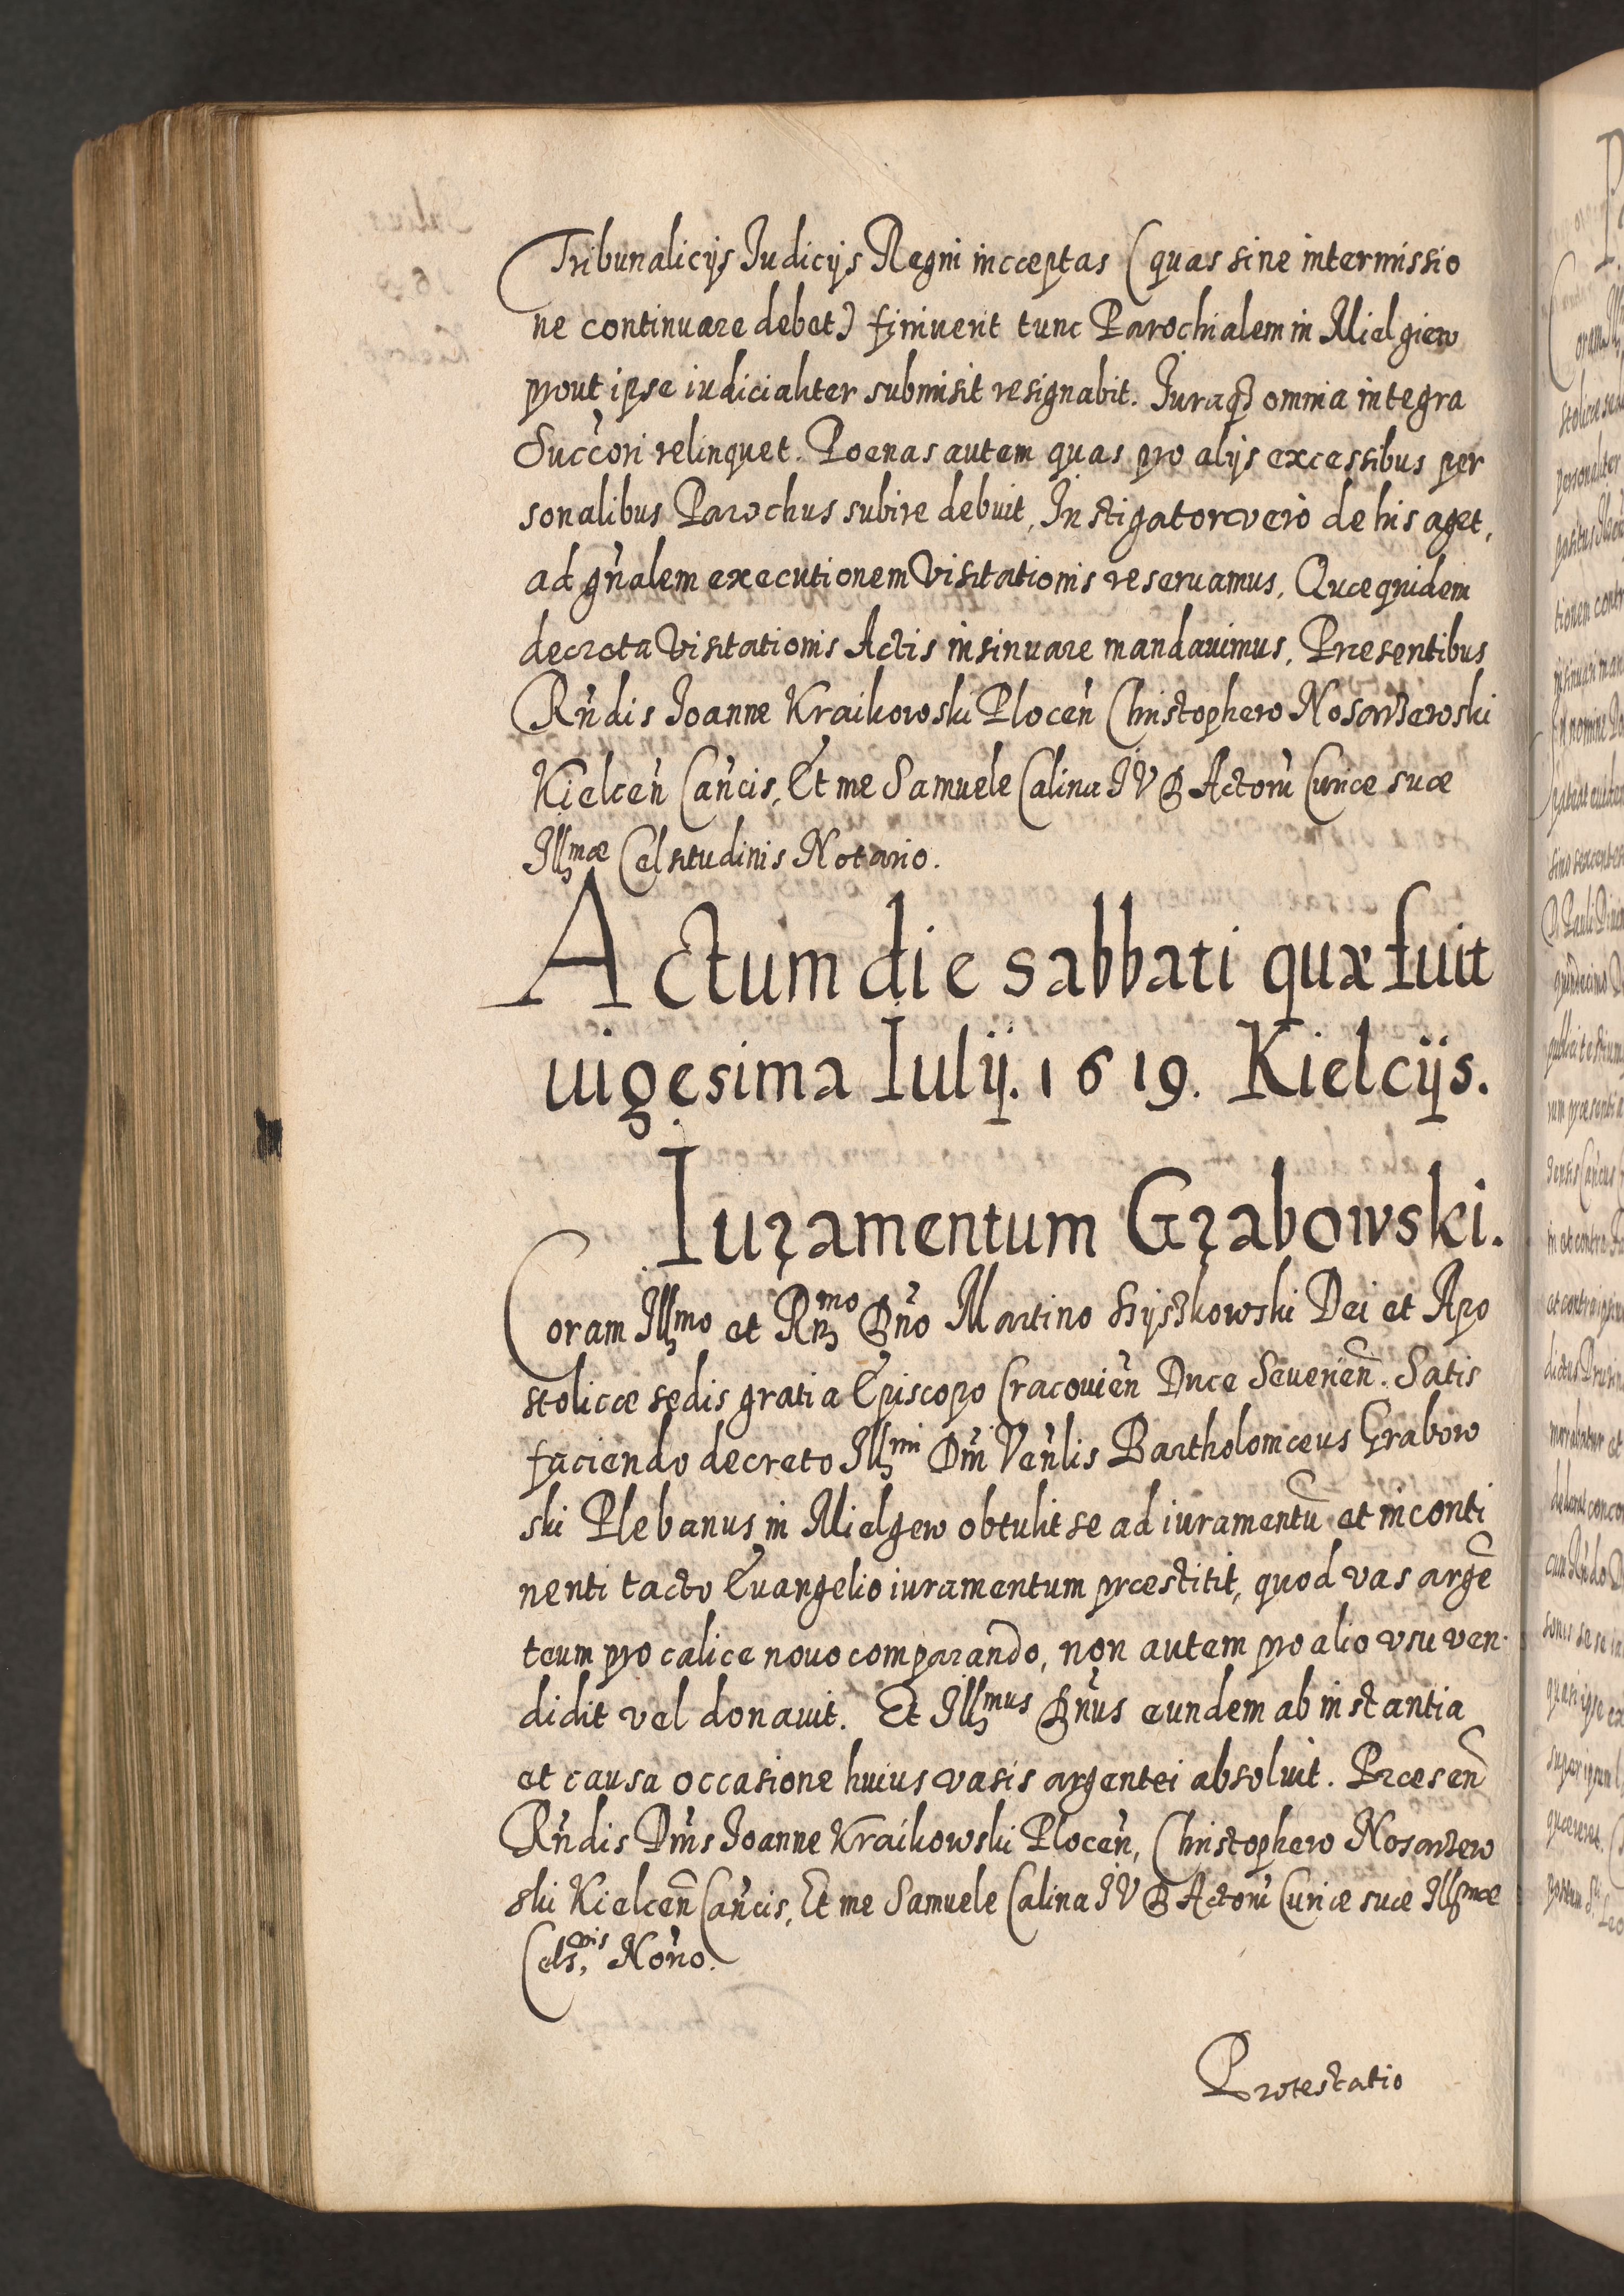 Tribunalicijs Iudicijs Regni incceptas (quas sine intermissio
ne continuare debet) finiuerit tunc Parochialem in Mielgiew
prout ipse iudicialiter submisit resignabit. Iuraq3 omnia integra
Succ̃ori relinquet. Poenas autem quas pro alijs excessibus per
sonalibus Parochus subire debuit, Instigator vero de his aget,
ad gñalem executionem Visitationis reseruamus. Quæ quidem
decreta Visitationis Actis insinuare mandauimus. Præsentibus
Rñdis Ioanne Kraikowski Plocen̄ Christophero Nosarzewski
Kielcen̄ Cañcis, Et me Samuele Calina I V D Actorū Curiæ suæ
Illmæ Celsitudinis Notario.
Actum die sabbati quæ fuit
uigesima Iulij. 1619. Kielcijs.
Iuramentum Grabowski.
Coram Illmo et Rmo Dño Martino Szyszkowski Dei et Apo
stolicæ sedis gratia Episcopo Cracouien̄ Duce Seuerien̄. Satis
faciendo decreto Illmi Dñi Veñlis Bartholomæus Grabow
ski Plebanus in Mielgew obtulit se ad iuramentū et inconti
nenti tacto Euangelio iuramentum præstitit, quod vas argē
teum pro calice nouo comparando, non autem pro alio vsu ven
didit vel donauit. Et Illmus Dñus eundem ab instantia
et causa occasione huius vasis argentei absoluit. Præsen̄
Rñdis Dñis Ioanne Kraikowski Plocen̄, Christophero Nosarzew
ski Kielcen̄ Cañcis, Et me Samuele Calina I V D Actorū Curiæ suæ Illmæ
Cels.nis Noṙio.
Protestatio